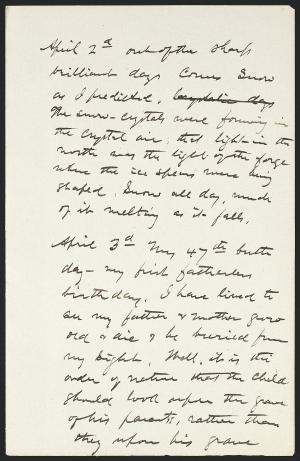 April 2d out of the sharp
brilliant days comes snow
as I predicted,
The snow-crystals were forming in
the crystal air; that light in the
north was the light of the forge
where the ice spears were being
shaped. Snow all day, much
of it melting as it falls.
April 3d My 47th birth
day – my first fatherless
birthday. I have lived to
see my father & mother grow
old & die & be burried from
my sight. Well, it is the
order of nature that the child
should look upon the grave
of his parents, rather than
they upon his grave